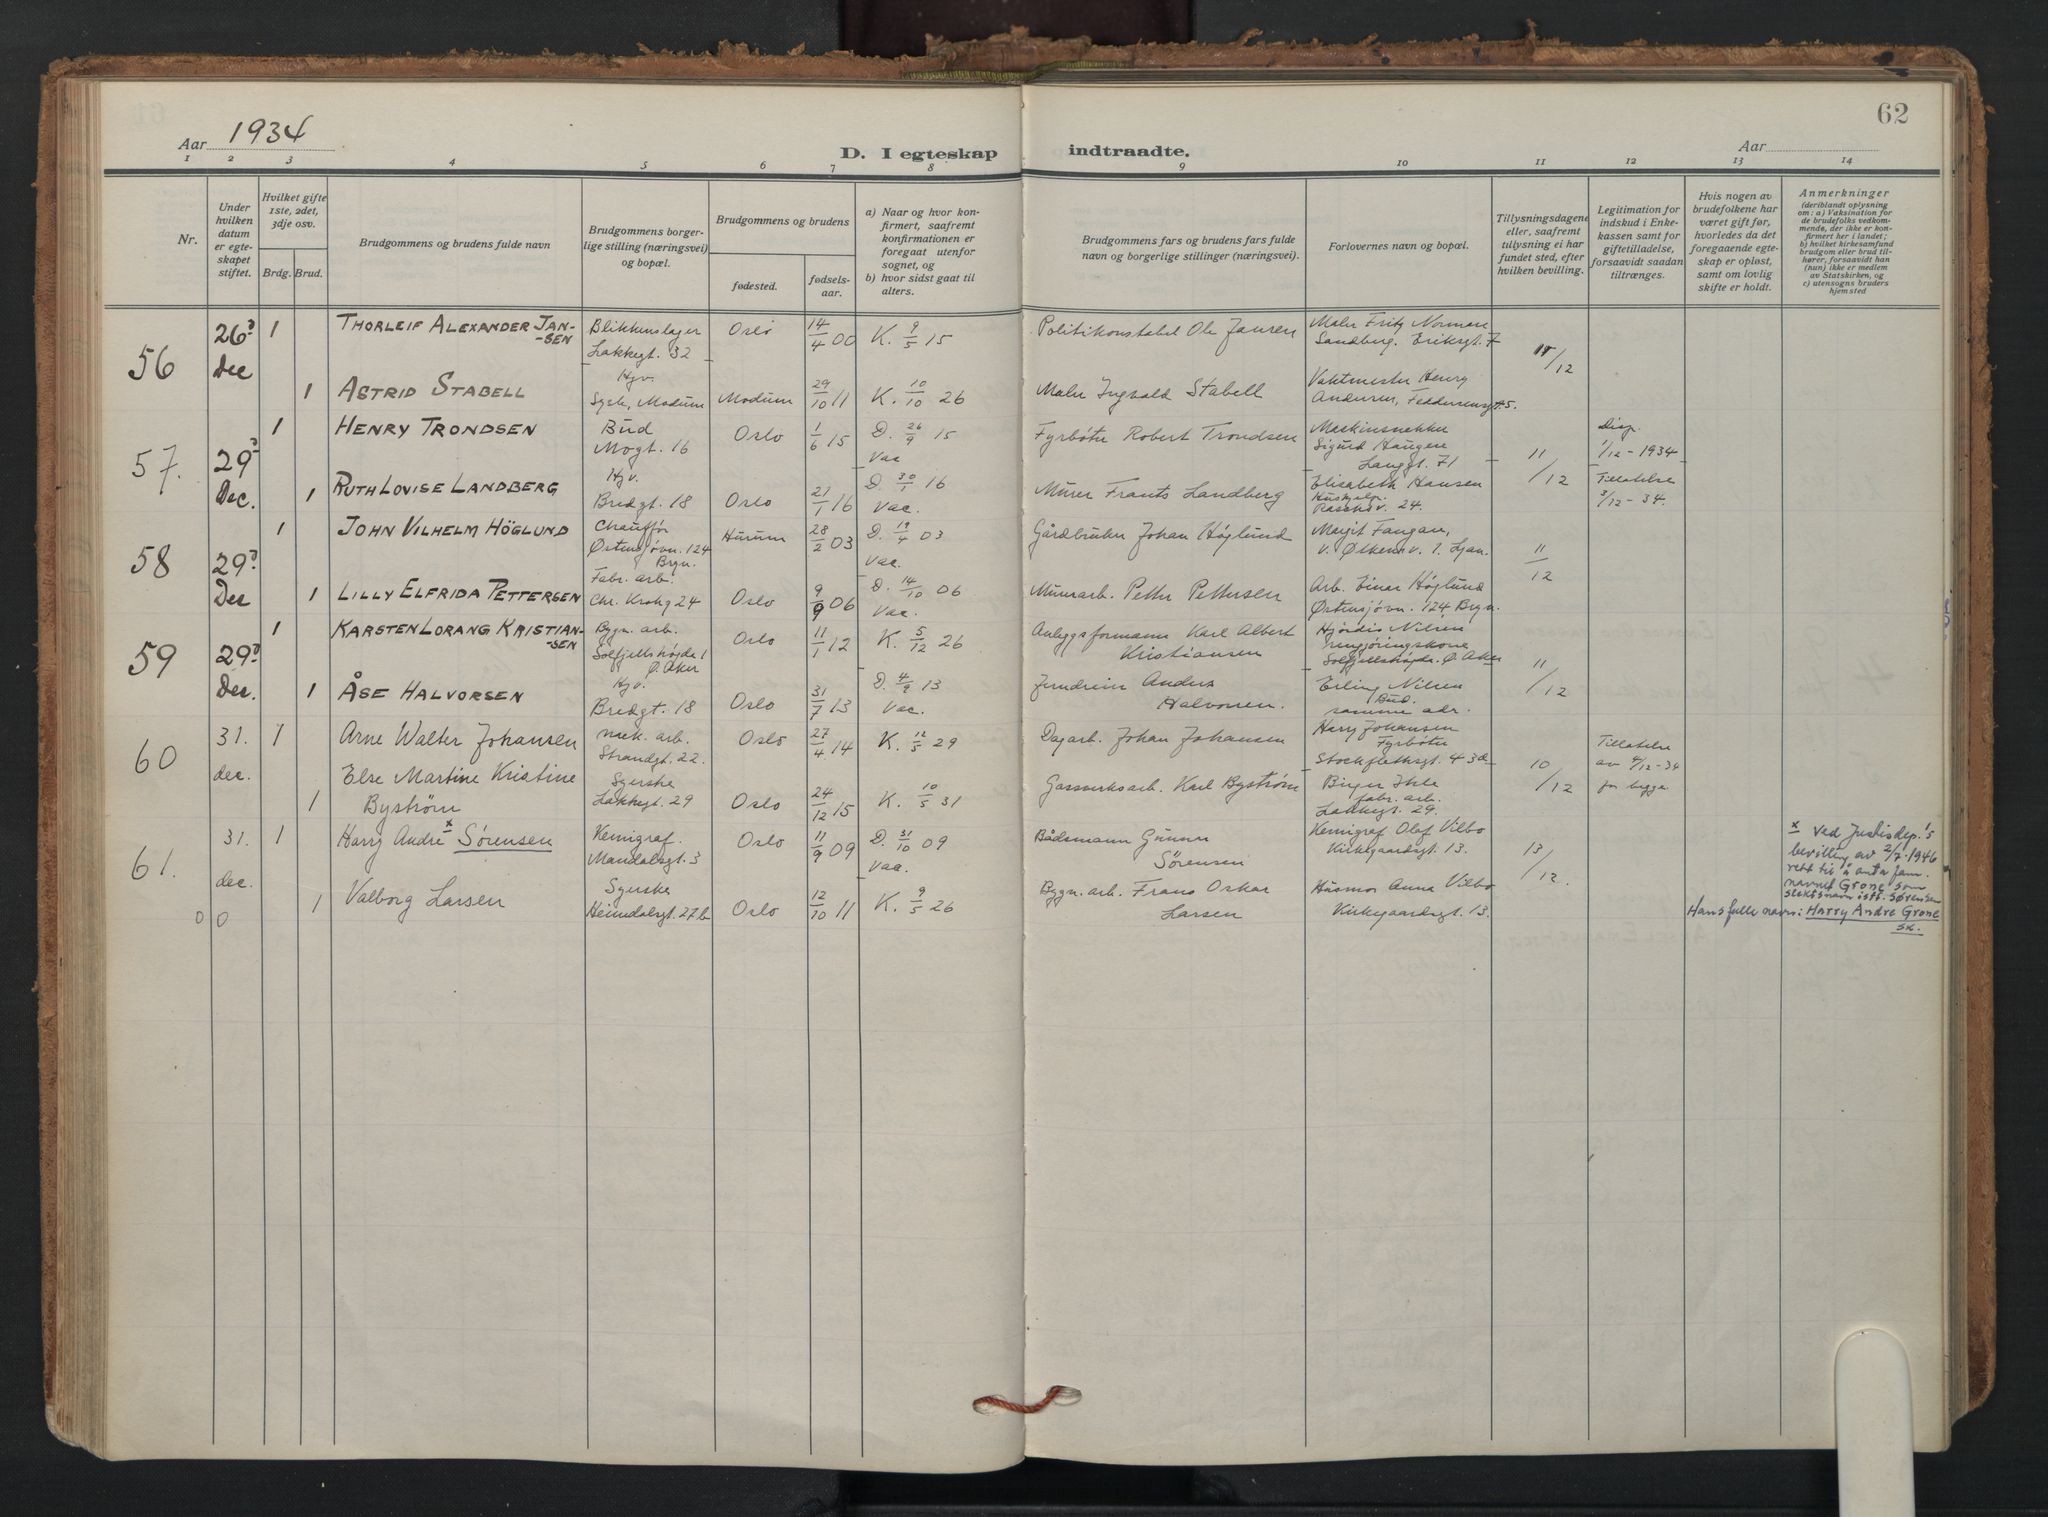 62
Aar 1934
Aar
D. I egteskap indtraadte.
1 2 3 4 5 6 7 8 9 10 11 12 13 14
Nr.
Under hvilken datum er egteskapet stiftet.
Hvilket gifte 1ste, 2det, 3dje osv.
Brdg. Brud.
Brudgommens og brudens fulde navn
Brudgommens borgerlige stilling (næringsvei) og bopæl.
Brudgommens og brudens
fødested.
fødselsaar.
a) Naar og hvor konfirmert, saafremt konfirmationen er foregaat utenfor sognet, og
b) hvor sidst gaat til alters.
Brudgommens fars og brudens fars fulde navn og borgerlige stillinger (næringsvei).
Forlovernes navn og bopæl.
Tillysningsdagene eller, saafremt tillysning ei har fundet sted, efter hvilken bevilling.
Legitimation for indskud i Enkekassen samt for giftetilladelse, forsaavidt saadan tiltrænges.
Hvis nogen av brudefolkene har været gift før, hvorledes da det foregaaende egteskap er opløst, samt om lovlig skifte er holdt.
Anmerkninger
(deriblandt oplysning om: a) Vaksination for de brudefolks vedkommende, der ikke er konfirmert her i landet; b) hvilket kirkesamfund brudgom eller brud tilhører, forsaavidt han (hun) ikke er medlem av Statskirken, og c) utensogns bruders hjemsted
56 26 Dec 1 THORLEIF ALEXANDER JANSEN Blikkenslager Lakkegt. 32 Oslo 14/4 00 K. 9/5 15 Politikonstabel Ole Jansen Maler Fritz Norman Sandberg. Eriksgt. 7 11/12
1 ASTRID STABELL Hjv. Sysle, Modum Modum 29/10 11 K. 10/10 26 Maler Ingvald Stabell Vaktmester Henry Andersen, Feddersensgt. 5.
57. 29 Dec. 1 HENRY TRONDSEN Bud Mogt. 16 Oslo 1/6 15 D. 26/9 15 Vac Fyrbøter Robert Trondsen Maskinsnekker Sigurd Haugen Langgt. 71 11/12 Disp. 1/12-1934
1 RUTH LOVISE LANDBERG Hjv. Bredgt. 18 Oslo 21/1 16 D. 30/1 16 Vac. Murer Frants Landberg Elisabeth Hansen Hushjelp. 24. Tillatelse 3/12-34.
58 29 Dec 1 JOHN VILHELM HÖGLUND Chauffør Østensjøvn. 124 Bryn. Hurum 28/2 03 D. 19/4 03 Vac. Gårdbruker Johan Høglund Margit Fangan, 11/12
1 LILLY ELFRIDA PETTERSEN Fabr. arb. Chr. Krohg 24 Oslo 9/9 06 D. 14/10 06 Vac. Murerarb. Petter Pettersen Arb. Einar Høglund Østensjøvn. 124 Bryn.
59 29 Dec. 1 KARSTEN LORANG KRISTIANSEN Bygn. arb. Solfjellshøgda 1 Ø. Aker Oslo 11/1 12 K. 5/12 26 Anleggsformann Karl Albert Kristiansen Hjørdis Nilsen rengjøringskone Solfjellshøgda. Ø. Aker 11/12
1 ÅSE HALVORSEN Hjv. Bredgt. 18 Oslo 31/7 13 D. 4/9 13 Vac. Jerndreier Anders Halvorsen. Erling Nilsen Bud. samme adr.
60 31. dec. 1 Arne Walter Johansen mek. arb. Strandgt. 22. Oslo 27/4 14 K. 12/5 29 Dagarb. Johan Johansen Harry Johansen Fyrbøter Stockflethsgt. 43 d 10/12 Tillatelse av 4/12-34 for begge
1 Else Martine Kristine Byström Syerske Lakkegt. 29 Oslo 24/12 15 K. 10/5 31 Gassverksarb. Karl Byström Birger Ihle fabr. arb. Lakkegt. 29.
61. 31. dec. 1 Harry André x Sørensen Kemigraf. Mandalsgt. 3 Oslo 11/9 09 D. 31/10 09 Vac. Bådsmann Gunnar Sørensen Kemigraf Olaf Vilbo Kirkegaardsgt. 13. 13/12.
1 Valborg Larsen Syerske Heimdalsgt. 27b Oslo 12/10 11 K. 9/5 26 Bygn. arb. Frans Oskar Larsen Husmor Anna Vilbo Kirkegaardsgt. 13.
0 0
x Ved Justisdep.'s
bevilling av 2/7-1946
rett til å anta fam.
navnet Grone som
slektsnavn istf. Sørensen
Hans fulle navn: Harry Andre Grone
sk.